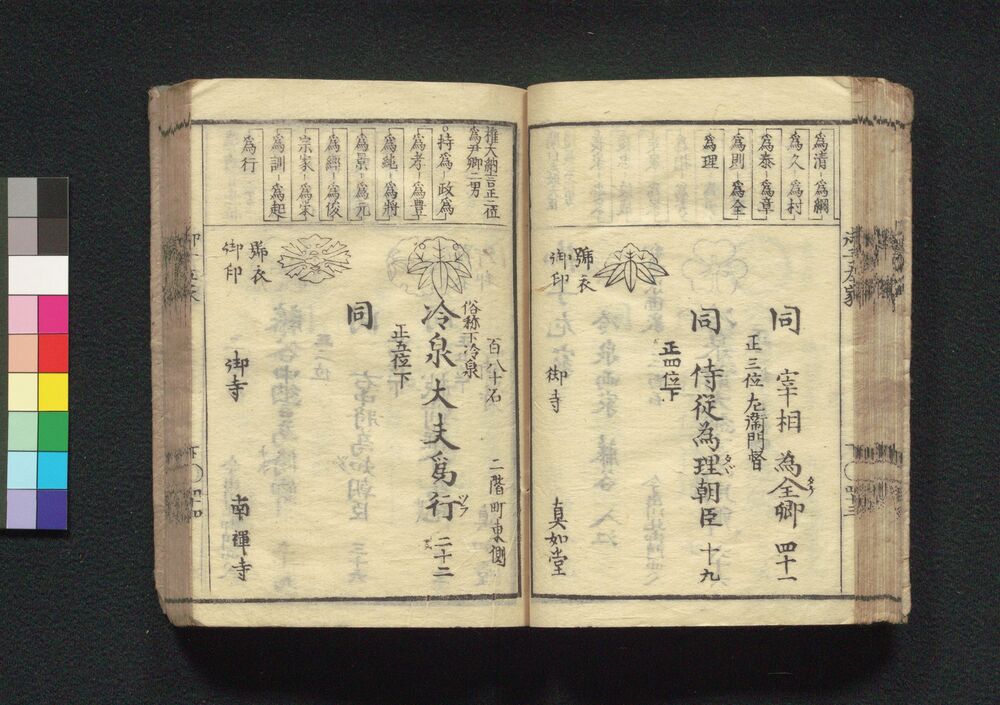 為清 為綱
為久 為村
為泰 為章
為則 為全
為理
同 宰相 為全卿 四十一
正三位左衛門督
同 侍従為理朝臣 十九
正四位下
御印 御寺 真如堂
権大納言正二位
為尹卿二男
持為 政為
為孝 為豊
為純 為将
為景 為元
為經 為俊
宗家 為栄
為訓 為起
為行
百八十名 二階町東側
俗称下冷泉
冷泉大夫為行 二十二
正五位下
同
御印 御寺 南禅寺